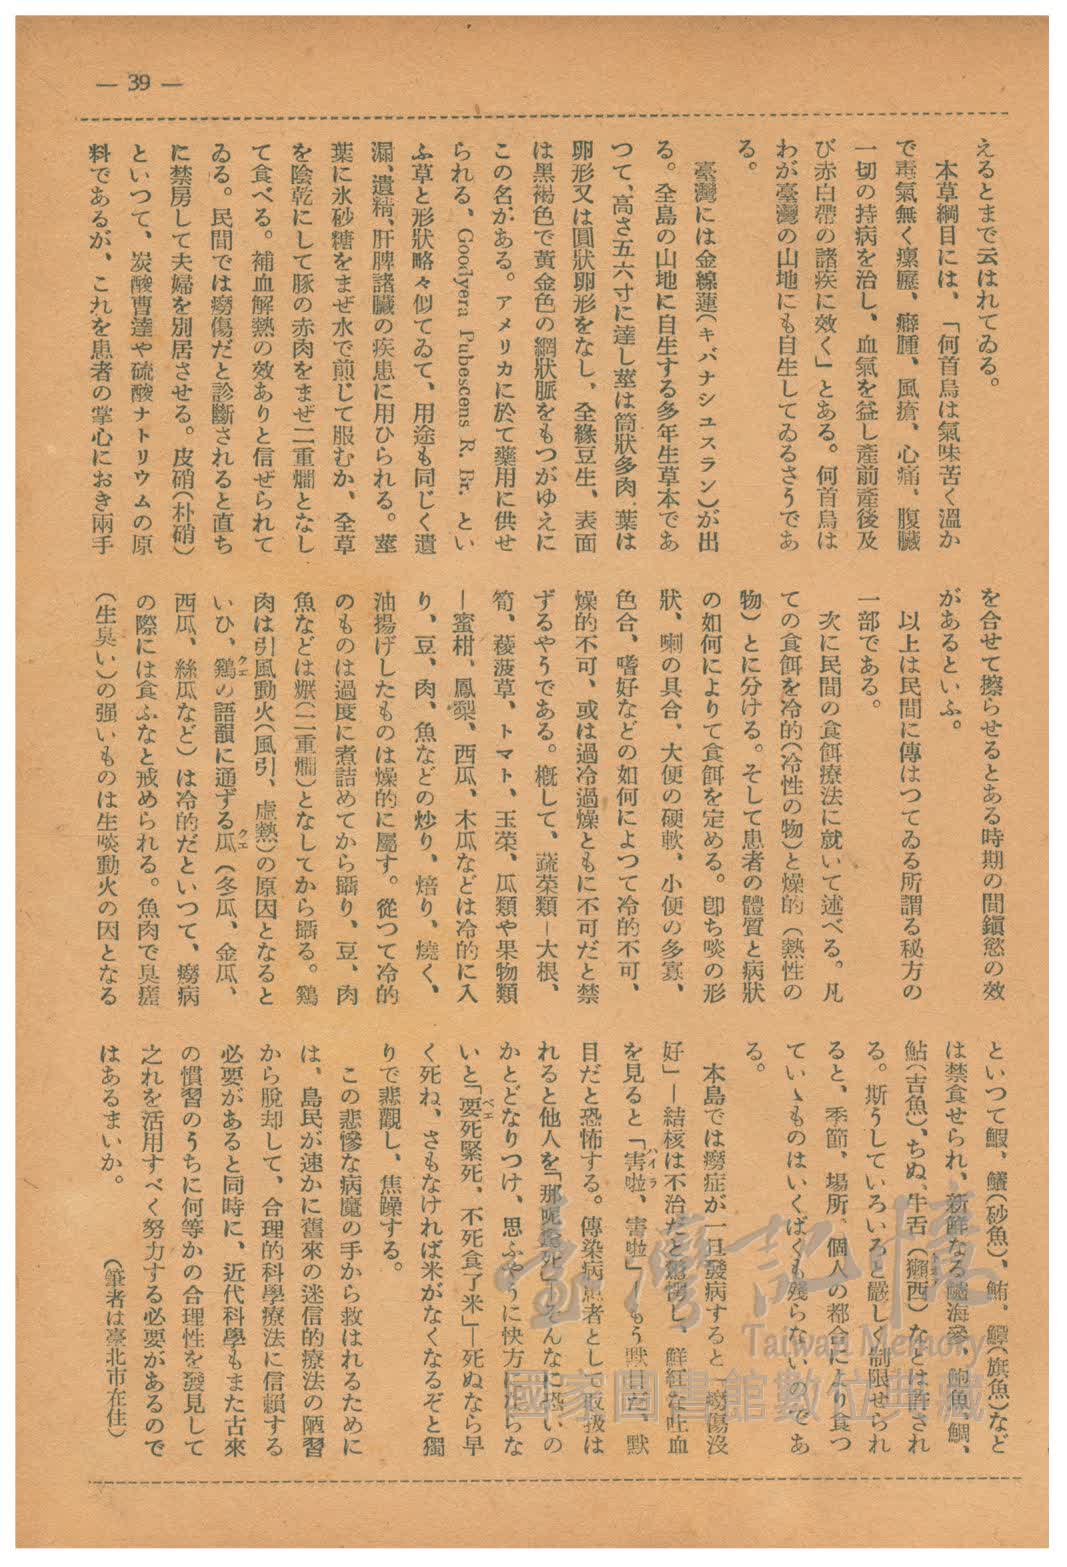 — 39 —
えるとまで云はれてゐる。
本草綱目には、「何首烏は氣味苦く溫か
で毒氣無く瘰癧、癰腫、風瘡、心痛、腹臟
一切の持病を治し、血氣を益し產前產後及
び赤白帶の諸疾に效く」とある。何首烏は
わが臺灣の山地にも自生してゐるさうであ
る。
臺灣には金線蓮(キバナシユスラン)が出
る。全島の山地に自生する多年生草本であ
つて、高さ五六寸に達し莖は筒狀多肉、葉は
卵形又は圓狀卵形をなし、全緣互生、表面
は黑褐色で黃金色の網狀脈をもつがゆえに
この名がある。アメリカに於て藥用に供せ
られる、Goodyera Pubescens R. Br. とい
ふ草と形狀略々似てゐて、用途も同じく遺
漏、遺精、肝脾諸臟の疾患に用ひられる。莖
葉に氷砂糖をまぜ水で煎じて服むか、全草
を陰乾にして豚の赤肉をまぜ二重爛となし
て食べる。補血解熱の效ありと信ぜられて
ゐる。民間では癆傷だと診斷されると直ち
に禁房して夫婦を別居させる。皮硝(朴硝)
といつて、炭酸曹達や硫酸ナトリウムの原
料であるが、これを患者の掌心におき兩手
を合せて擦らせるとある時期の間鎭慾の效
があるといふ。
以上は民間に傳はつてゐる所謂る秘方の
一部である。
次に民間の食餌療法に就いて述べる。凡
ての食餌を冷的(冷性の物)と燥的(熱性の
物)とに分ける。そして患者の體質と病狀
の如何によりて食餌を定める。卽ち啖の形
狀、喇の具合、大便の硬軟、小便の多寡、
色合、嗜好などの如何によつて冷的不可、
燥的不可、或は過冷過燥ともに不可だと禁
ずるやうである。槪して、蔬菜類—大根、
筍、菠薐草、トマト、玉菜、瓜類や果物類
—蜜柑、鳳梨、西瓜、木瓜などは冷的に入
り、豆、肉、魚などの炒り、焙り、燒く、
油揚げしたものは燥的に屬す。從つて冷的
のものは過度に煮詰めてから攝り、豆、肉
魚などは(二重爛)となしてから攝る。鷄
肉は引風動火(風引、虛熱)の原因となると
いひ、鷄クエの語韻に通ずる瓜クエ(冬瓜、金瓜、
西瓜、絲瓜など)は冷的だといつて、癆病
の際には食ふなと戒められる。魚肉で臭
(生臭い)の强いものは生啖動火の因となる
といつて鰕、鱶(砂魚)、鮪、鱏(旗魚)など
は禁食せられ、新鮮なる海參、鮑魚、鯛、
鮎(吉魚)、ちぬ、牛舌(獺西)などは許され
る。斯うしていろいろと嚴しく制限せられ
ると、季節、場所、個人の都合により食つ
てい丶ものはいくばくも殘らないのであ
る。
本島では癆症が一旦發病すると「癆傷沒
好」—結核は不治だと驚愕し、鮮紅な吐血
を見ると「害啦ハイラ、害啦」—もう駄目だ、駄
目だと恐怖する。傳染病患者として取扱は
れると他人を「那呢死」—そんなに恐いの
かとどなりつけ、思ふやうに快方にならな
いと「要ベエ死緊死、不死食了米」—死ぬなら早
く死ね、さもなければ米がなくなるぞと獨
りで悲觀し、焦躁する。
この悲慘な病魔の手から救はれるために
は、島民が速かに舊來の迷信的療法の陋習
から脫却して、合理的科學療法に信賴する
必要があると同時に、近代科學もまた古來
の慣習のうちに何等かの合理性を發見して
之れを活用すべく努力する必要があるので
はあるまいか。
(筆者は臺北市在住)
臺灣記憶
Taiwan Memory
國家圖書館數位典藏